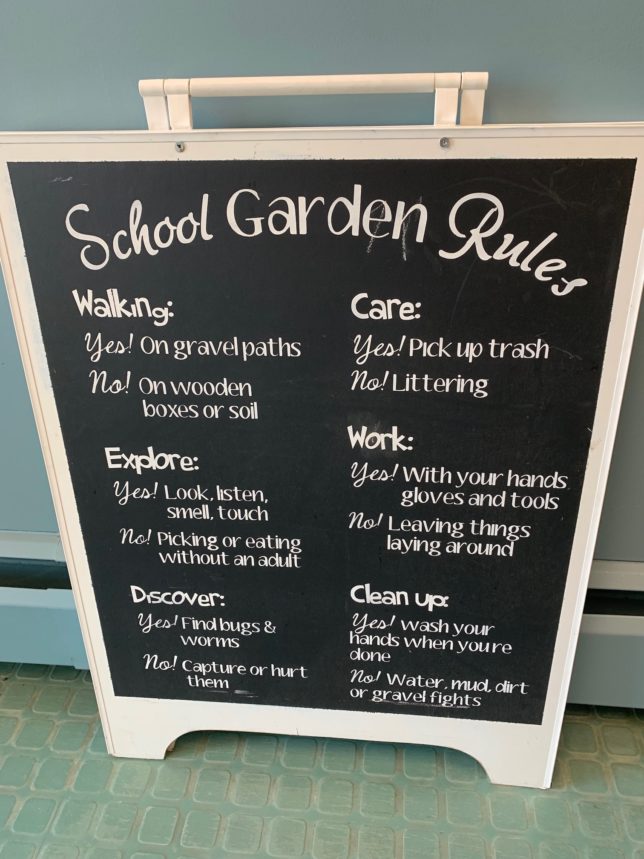 School Garden Rules
Walking:
Yes! On gravel paths
No! On wooden
boxes or soil
Explore:
Yes! Look, listen,
smell, touch
No! Picking or eating
without an adult
Discover:
Yes! Find bugs &
worms
No! Capture or hurt
them
Care:
Yes! Pick up trash
No! Littering
Work:
Yes! With your hands
gloves and tools
No! Leaving things
laying around
Clean up:
Yes! Wash your
hands when you're
done
No! Water, mud, dirt
or gravel fights